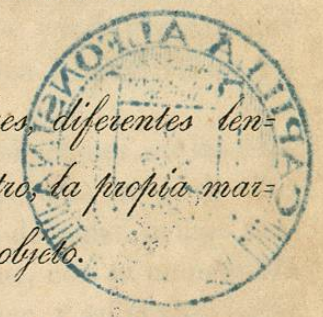 es, diferentes len=
tro, la propia mar=
objeto.
CAPILLA ALFONSINA